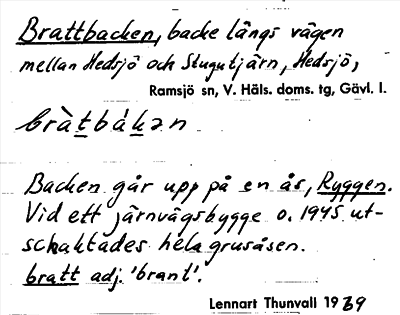 Brattbacken, backe längs vägen
mellan Hedsjö och Stugutjärn, Hedsjö,
Ramsjö sn, V. Häls. doms. tg, Gävl. l.
bràtbákən
Backen går upp på en ås, Ryggen.
Vid ett järnvägsbygge o. 1945 ut-
schaktades hela grusåsen.
bratt adj. 'brant'.
Lennart Thunvall 1969